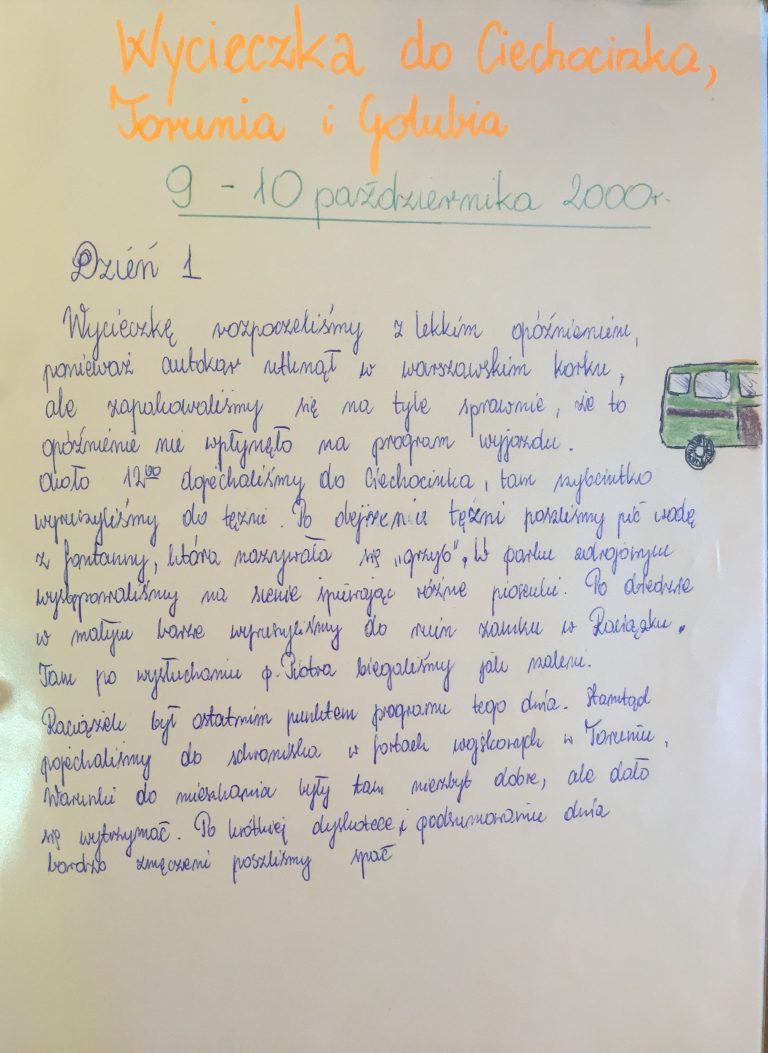 Wycieczka do Ciechocinka,
Torunia i Golubia
9 - 10 października 2000r.
Dzień 1
Wycieczkę rozpoczeliśmy z lekkim opóźnieniem,
ponieważ autokar utknął w warszawskim korku,
ale zapakowaliśmy się na tyle sprawnie, że to
opóźnienie nie wpłynęło na program wyjazdu.
Około 12⁰⁰ dojechaliśmy do Ciechocinka, tam szybciutko
wyruszyliśmy do tężni. Po obejrzeniu tężni poszliśmy pić wodę
z fontanny, która nazywała się „grzyb". W parku zdrojowym
występowaliśmy na scenie śpiewając różne piosenki. Po obiedzie
w małym barze wyruszyliśmy do ruin zamku w Raciążku.
Tam po wysłuchaniu p. Piotra biegaliśmy jak szaleni.
Raciążek był ostatnim punktem programu tego dnia. Stamtąd
pojechaliśmy do schroniska w fortach wojskowych w Toruniu.
Warunki do mieszkania były tam niezbyt dobre, ale dało
się wytrzymać. Po krótkiej dyskotece i podsumowaniu dnia
bardzo zmęczeni poszliśmy spać